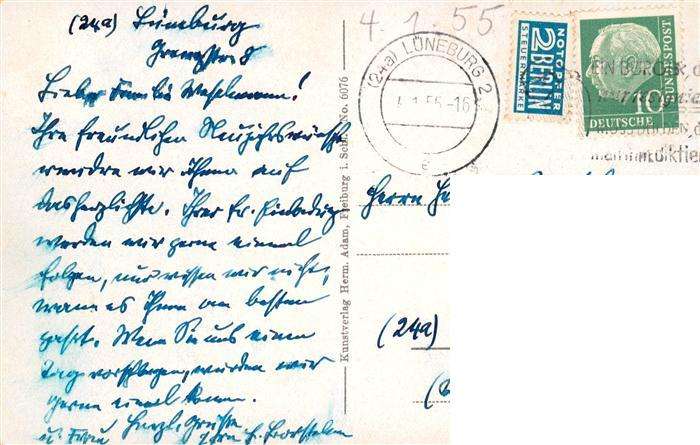 (24a) Lüneburg
4.1.55
Liebe Familie
Ihre freundlichen Neujahrswünsche
wir Ihnen auf
das herzlichste. Ihrer fr. Einladung
werden wir gerne einmal
folgen, nur wissen wir nicht,
wann es Ihnen am besten
passt. Wenn Sie uns einen
Tag vorschlagen, würden wir
gerne einmal kommen.
Herzl. Grüße
u. Frau Ihre
Kunstverlag Herm. Adam, Freiburg i. No. 6076
(24a) LÜNEBURG 2
1.55-16
NOTOPFER
2 BERLIN
STEUERMARKE
DEUTSCHE BUNDESPOST
10
Herrn
(24a)